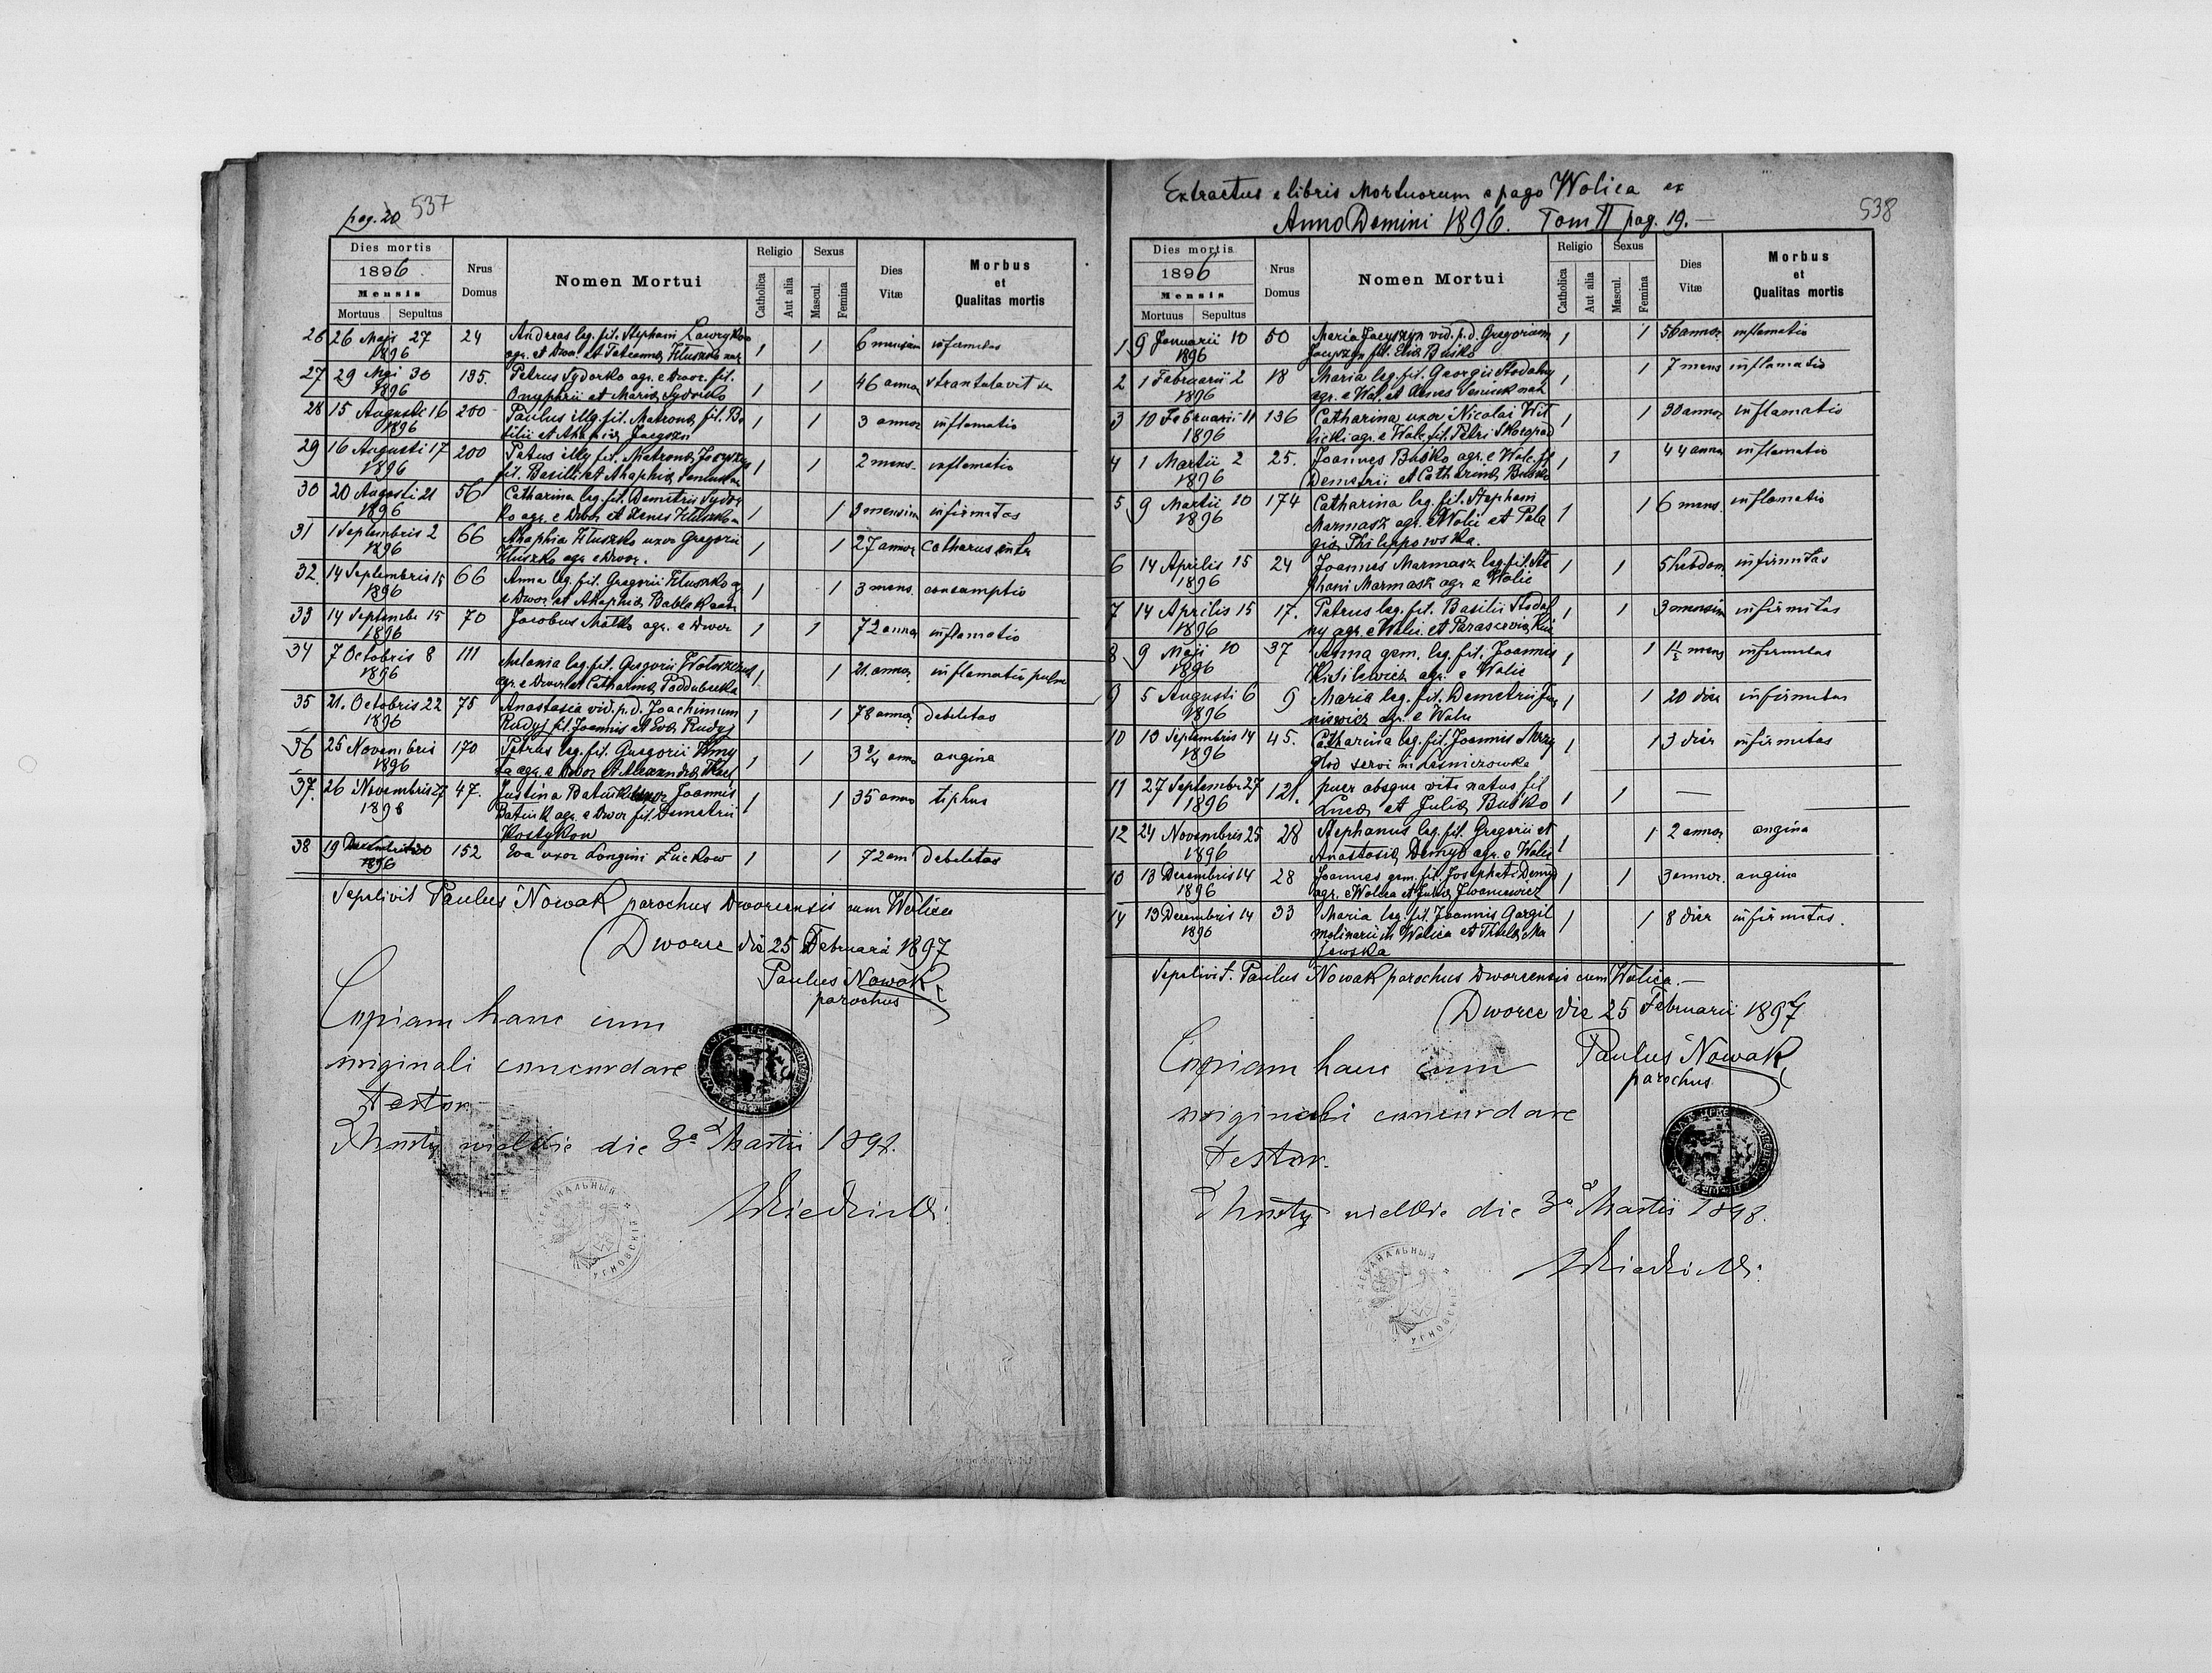 pag. 20 537
Dies mortis
1896.
Mensis
Mortuus Sepultus
Nrus Domus
Nomen Mortui
Religio
Catholica
Aut alia
Sexus
Mascul.
Femina
Dies Vitæ
Morbus et Qualitas mortis
26 26 Maji 27 24 Andreas leg. fil. Stephani 1 1 6 mensium infirmitas
1896 agr. et
27 29 Maji 30 195. Petrus Sydorko agr. e Dworc. fil. 1 1 46 annor
1896 Onuphrii et Maria Sydorko
28 15 Augusti 16 200 Paulus illg. fil. Matrona fil. Ba 1 1 3 annor inflamatio
1896 silii et Ahaphia Jacyszn
29 16 Augusti 17 200 Petrus illg fil. Matrona 1 1 2 mens. inflamatio
1896 fil. Basilii et Ahaphia
30 20 Augusti 21 56 Catharina leg. fil. Demetrii Sydor 1 1 mensium infirmitas
1896 ko agr. e Dwor et
31 1 Septembris 2 66 Ahaphia Hluszko uxor Gregorii 1 1 27 annor catharus
1896 Hluszko agr e Dwor.
32. 14 Septembris 15 66 Anna leg. fil. Gregorii Hluszko a 1 1 3 mens. consumptio
1896 e Dwor et Ahaphia
33 14 Septembr 15 70 Jacobus Malko agr. e Dwor 1 1 72 annor inflamatio
1896
34 7 Octobris 8 111 Melania leg. fil. Gregorii 1 1 21. annor inflamatio pulm
1896 agr. e Dwor et Catharina Poddubecka
35 21. Octobris 22 75 Anastasia vid. p. d. Joachimum 1 1 78 annor debilitas
1896 Rudyj fil. Joannis et Eva Rudyj
36 25 Novembris 170 Petrus leg. fil. Gregorii 1 1 3 3/4 anno angina
1896 agr. e Dwor et Alexandra
37. 26 Novembris 27 47. Justina Batiuk uxor Joannis 1 1 35 anno tiphus
1896 Batiuk agr. e Dwor fil. Demetrii
Kostykow
38 19 Decembris 20 152 Eva uxor Longini Luckow 1 1 72 ann debilitas
1896
Sepelivit Paulus Nowak parochus Dworcensis cum Wolica
Dworce die 25 Februarii 1897
Paulus Nowak
parochus
Copiam hanc cum
originali concordare
testor
die 3a Martii 1898.
Extractus e libris Mortuorum e pago Wolica ex
Anno Domini 1896. Tom II pag. 19.—
538
Dies mortis
1896
Mensis
Mortuus Sepultus
Nrus Domus
Nomen Mortui
Religio
Catholica
Aut alia
Sexus
Mascul.
Femina
Dies Vitæ
Morbus et Qualitas mortis
1 9 Januarii 10 50 Maria Jacyszyn vid. p. d. Gregorium 1 1 56 annor inflamatio
1896 Jacyszyn fil. Elia Buśko
2 1 Februarii 2 18 Maria leg. fil. Georgii Stodalny 1 1 7 mens inflamatio
1896 agr. e Wol. et
3 10 Februarii 11 136 Catharina uxor Nicolai Wit 1 1 30 annor inflamatio
1896 licki agr. e Wolc. fil. Petri
4 1 Martii 2 25. Joannes Buśko agr. e Wolc. fil 1 1 44 annor inflamatio
1896 Demetrii et Catharina Buśko
5 9 Martii 10 174 Catharina leg. fil. Stephani 1 1 6 mens inflamatio
1896 Marmasz agr. e Wolic et Pela
gia Philippowska.
6 14 Aprilis 15 24 Joannes Marmasz leg. fil. Ste 1 1 5 hebdom infirmitas
1896 phani Marmasz agr e Wolic
7 14 Aprilis 15 17. Petrus leg. fil. Basilii Stodal 1 1 3 mensium infirmitas
1896 ny agr. e Wolic. et Parascevia
8 9 Maji 10 37 Anna gem. leg. fil. Joannis 1 1 1 1/2 mens infirmitas
1896 Kisilewicz agr. e Wolic
9 5 Augusti 6 9 Maria leg. fil. Demetrii 1 1 20 dier infirmitas
1896 agr. e Wolic
10 13 Septembris 14 45. Catharina leg. fil. Joannis Mrzy 1 1 3 dier infirmitas
1896 glod servi in
11 27 Septembr 27 121. puer absque vita natus fil 1 1 —
1896 Luca et Julia Buśko
12 24 Novembris 25 28 Stephanus leg. fil. Gregorii et 1 1 2 annor angina
1896 Anastasia Demyd agr. e Wolic
13 13 Decembris 14 28 Joannes gem. fil. Josephati Demyd 1 1 3 annor. angina
1896 agr. e Wolica et Julia Iwaniewicz
14 13 Decembris 14 33 Maria leg. fil. Joannis Gargil 1 1 8 dier infirmitas.
1896 molinarii in Wolica et Thecla Ma
jewska
Sepelivit. Paulus Nowak parochus Dworcensis cum Wolica.—
Dworce die 25 Februarii 1897
Paulus Nowak
parochus
Copiam hanc cum
originali concordare
testor.
die 3a Martii 1898.